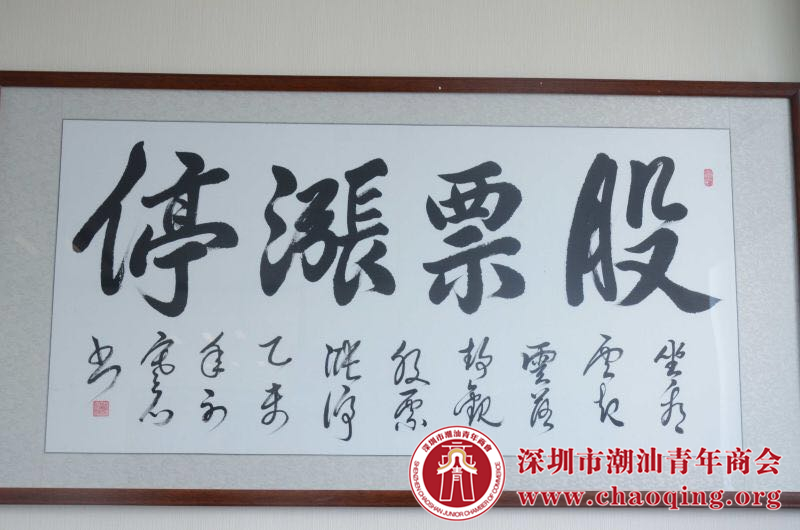 股票漲停
坐看
雲起
雲落
静觀
股票
漲停
乙未
书
深圳市潮汕青年商會
SHENZHEN CHAOSHAN JUNIOR CHAMBER OF COMMERCE
深圳市潮汕青年商会
www.chaoqing.org